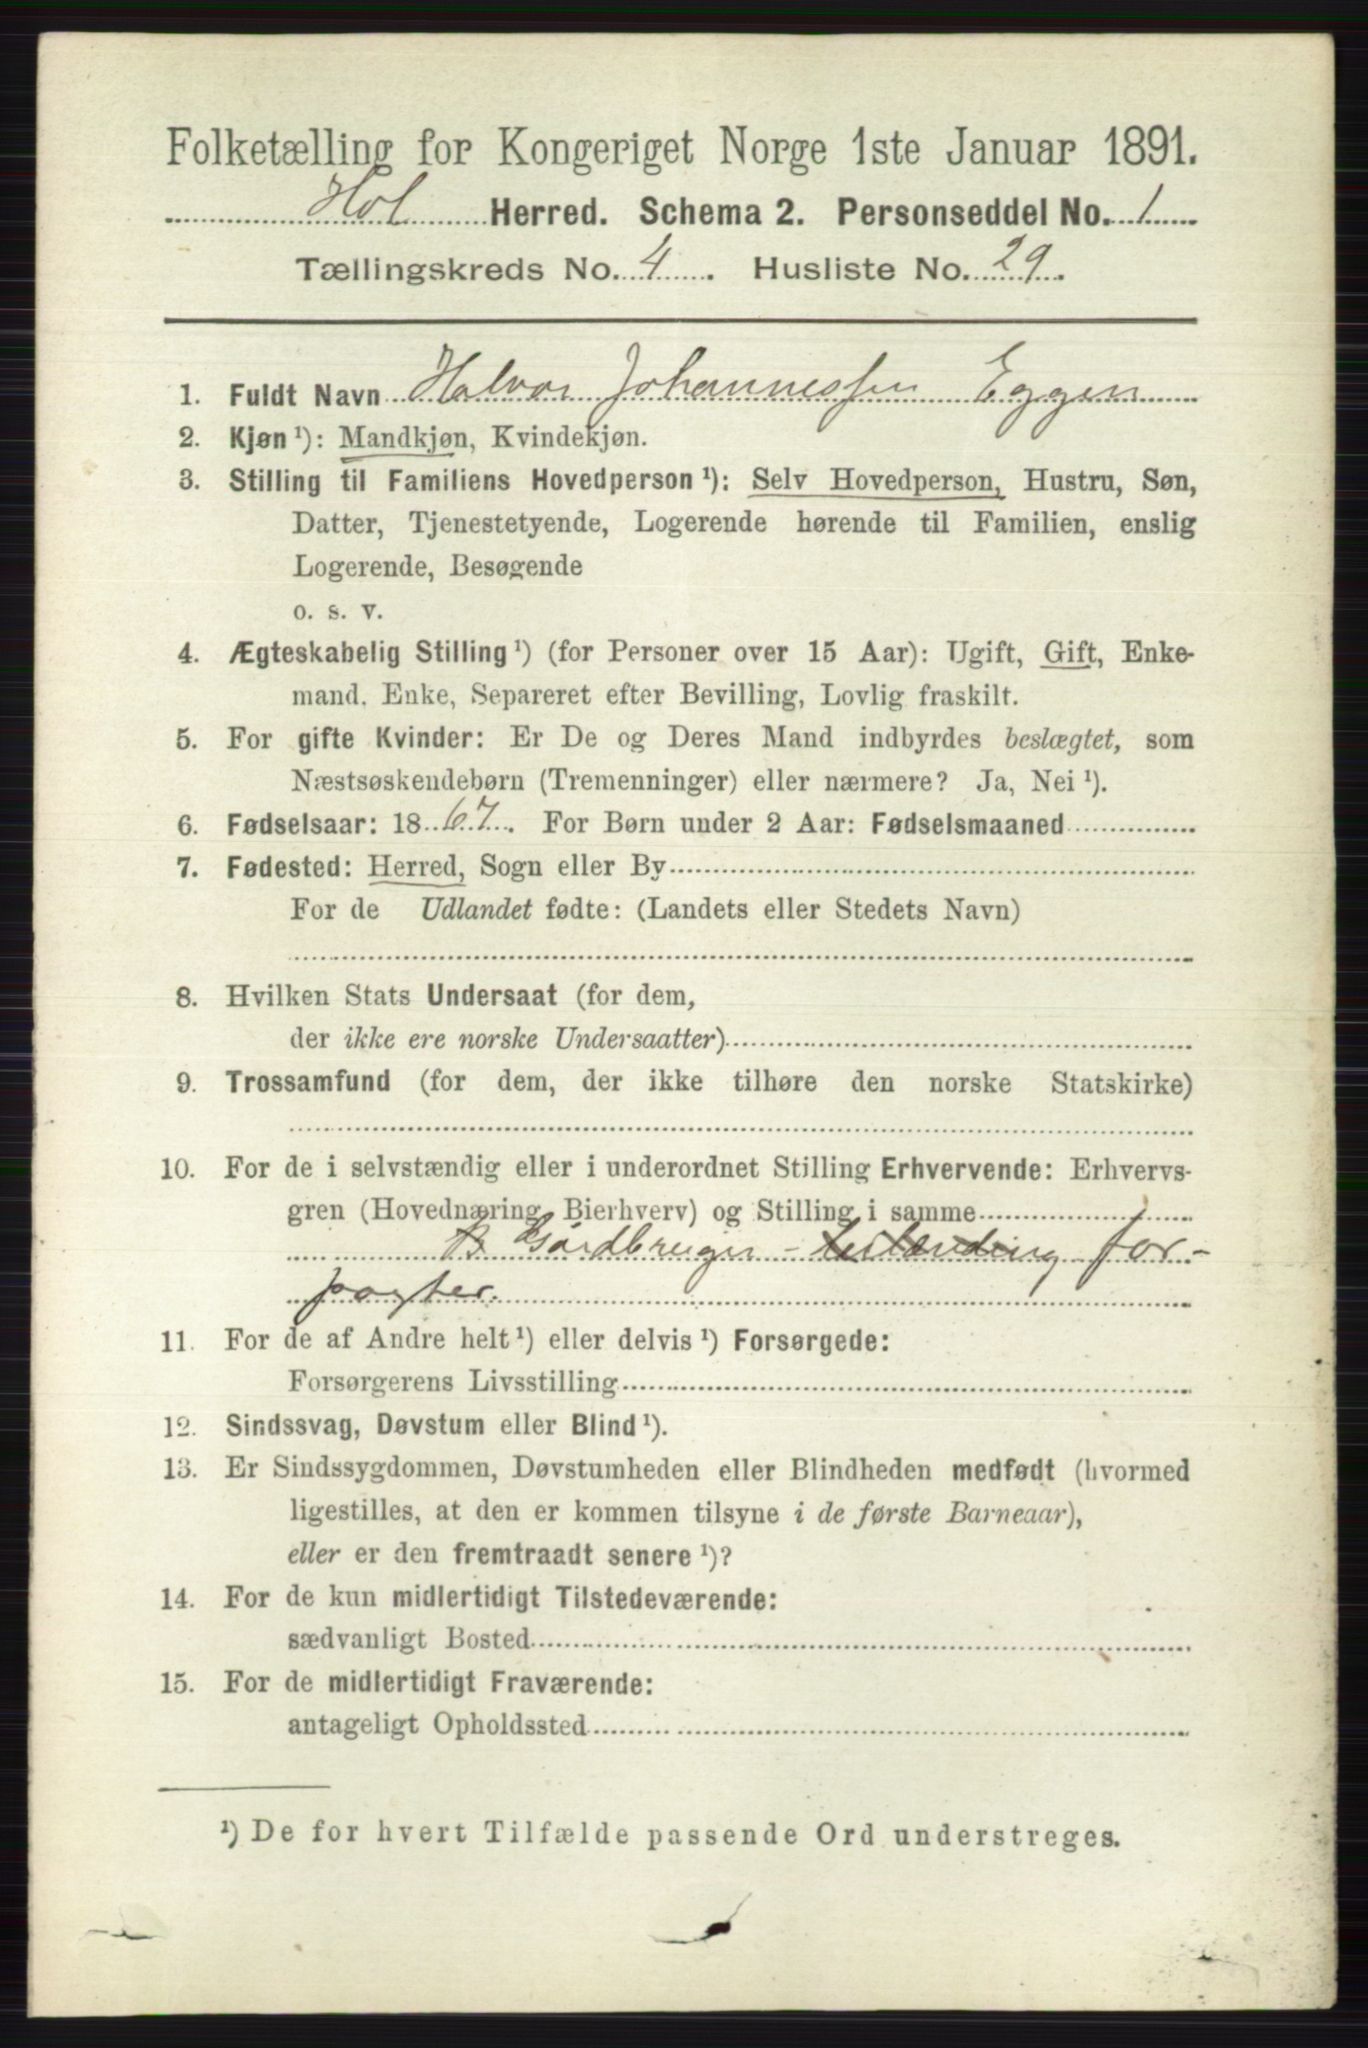 Folketælling for Kongeriget Norge 1ste Januar 1891.
Hol Herred. Schema 2. Personseddel No. 1
Tællingskreds No. 4. Husliste No. 29.
1. Fuldt Navn Halvor Johannessen Eggen
2. Kjøn ¹): Mandkjøn, Kvindekjøn.
3. Stilling til Familiens Hovedperson ¹): Selv Hovedperson, Hustru, Søn,
Datter, Tjenestetyende, Logerende hørende til Familien, enslig
Logerende, Besøgende
o. s. v.
4. Ægteskabelig Stilling ¹) (for Personer over 15 Aar): Ugift, Gift, Enke-
mand, Enke, Separeret efter Bevilling, Lovlig fraskilt.
5. For gifte Kvinder: Er De og Deres Mand indbyrdes beslægtet, som
Næstsøskendebørn (Tremenninger) eller nærmere? Ja, Nei ¹).
6. Fødselsaar: 1867. For Børn under 2 Aar: Fødselsmaaned
7. Fødested: Herred, Sogn eller By
For de Udlandet fødte: (Landets eller Stedets Navn)
8. Hvilken Stats Undersaat (for dem,
der ikke ere norske Undersaatter)
9. Trossamfund (for dem, der ikke tilhøre den norske Statskirke)
10. For de i selvstændig eller i underordnet Stilling Erhvervende: Erhvervs-
gren (Hovednæring, Bierhverv) og Stilling i samme
Gårdbruger – Leilænding for-
pagter.
11. For de af Andre helt ¹) eller delvis ¹) Forsørgede:
Forsørgerens Livsstilling
12. Sindssvag, Døvstum eller Blind ¹).
13. Er Sindssygdommen, Døvstumheden eller Blindheden medfødt (hvormed
ligestilles, at den er kommen tilsyne i de første Barneaar),
eller er den fremtraadt senere ¹)?
14. For de kun midlertidigt Tilstedeværende:
sædvanligt Bosted
15. For de midlertidigt Fraværende:
antageligt Opholdssted
¹) De for hvert Tilfælde passende Ord understreges.